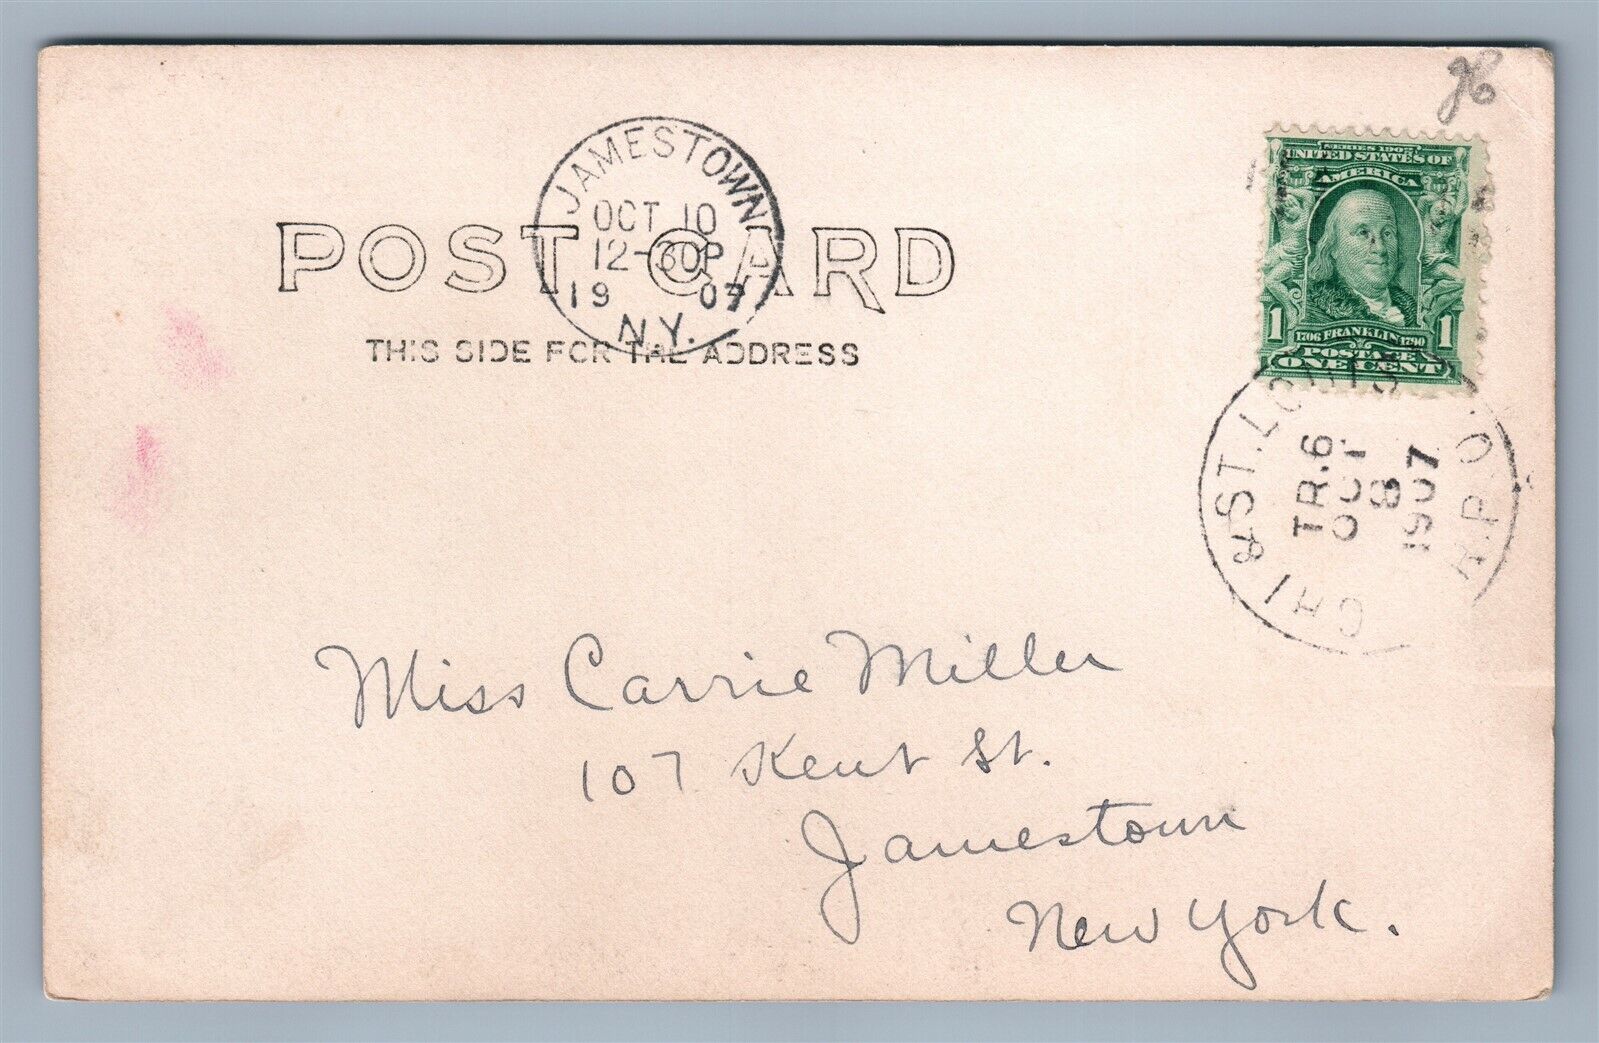 JAMESTOWN
OCT 10
12-30P
19 07
N.Y.
POST CARD
THIS SIDE FOR THE ADDRESS
SERIES 1902
UNITED STATES OF
AMERICA
1 1706 FRANKLIN 1790 1
POSTAGE
ONE CENT
CHI & ST. LOUIS R.P.O.
TR. 6
OCT
8
1907
Miss Carrie Miller
107 Kent St.
Jamestown
New York.